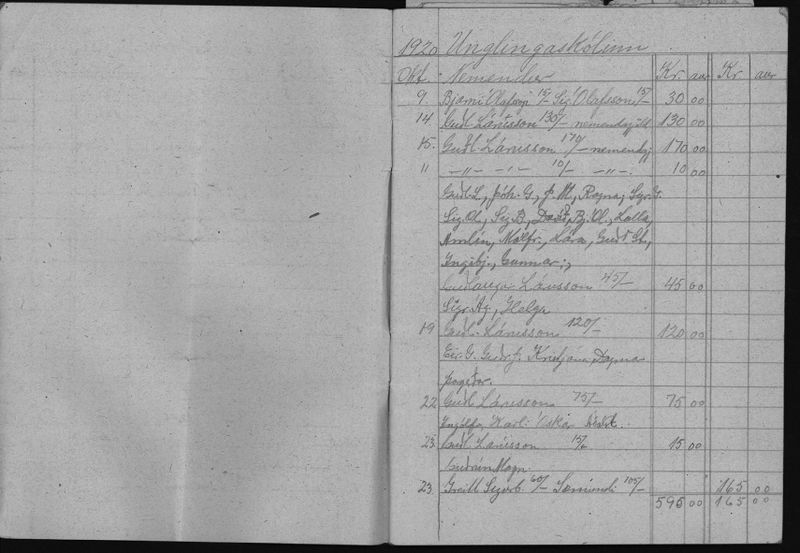 1920 Unglingaskólinn
Okt. Nemendur Kr. aur Kr. aur
9. Bjarni Ólafsson 15/- Sig. Ólafsson 15/- 30 00
14. Guðl. Lárusson 130/- nemendagj. 130 00
15. Guðl. Lárusson 170/- nemendagj. 170 00
" -"- -"- 10/- -"-. 10 00
Guðl. L., Jóh. G., Þ. M., Ragna,
Sig. Ól., Sig. B., Davíð, Bj. Ól., Lalla,
Málfr., Lára, Guðr. St.,
Ingibj., Gunnar;
Guðlaugur Lárusson 45/- 45 00
Sigr. Ág., Helga
19 Guðl. Lárusson 120/- 120 00
Eir. G. Guðr. J. Kristjana, Dagma
22 Guðl. Lárusson 75/- 75 00
Ingólfs, Karl. Óskar
23. Guðl. Lárusson 15/- 15 00
Guðrún Magn.
23. Greitt Sigurb. 60/- Sæmundi 105/- 165 00
595 00 165 00